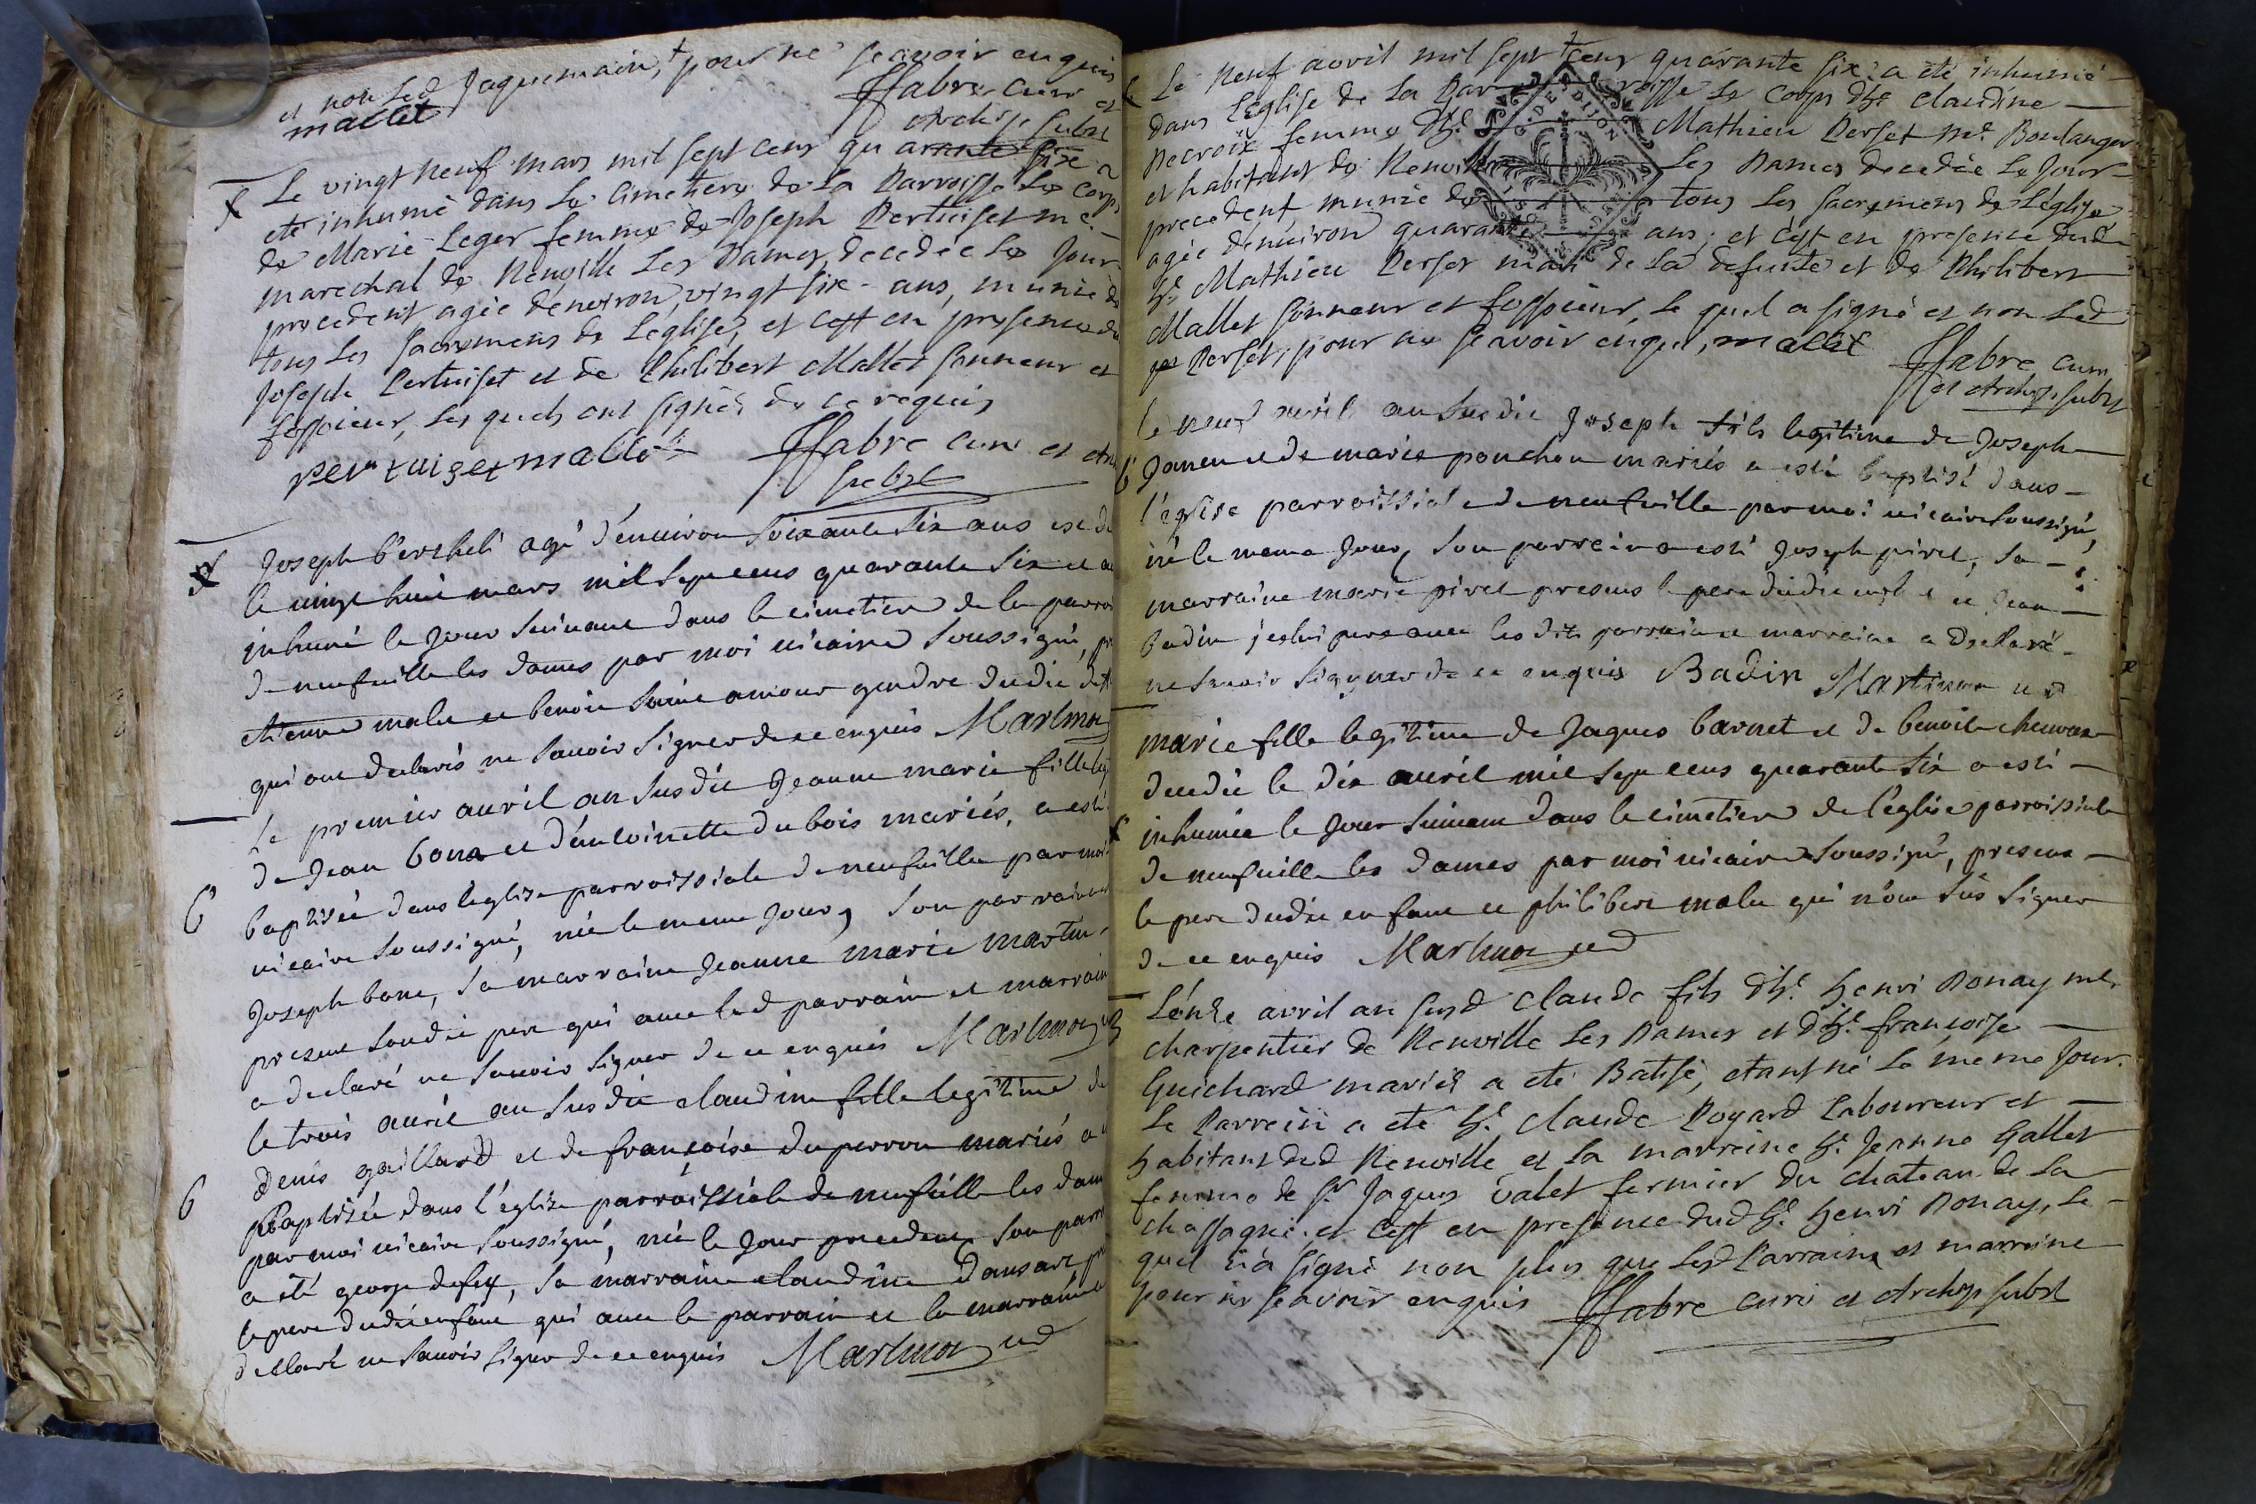 et non led Jaquemain, pour ne sçavoir enquis
mallet ffabre curé et
Archip. subst
Le vingt neuf mars mil sept cens quarante six a
eté inhumé dans le Cimetiere de la Parroisse le corps
de Marie Leger femme de Joseph Pertuiset me.
marechal de Neuville Les Dames, decedée le jour
precedent agée denviron vingt six ans, munie de
tous les sacremens de Leglise, et cest en presence du
Joseph Pertuiset et de Philibert Mallet sonneur et
fossoieur, les quels ont signés de ce requis
pertuiset mallet ffabre curé et
subst
Joseph bertheli agé d'environ soixante six ans est
le vingt huit mars mil sept cens quarante six et a
inhumé le jour suivant dans le cimetiere de la parro
de neufville les dames par moi vicaire soussigné,
etienne malet et benoit amour gendre dudit
qui ont declarés ne savoir signer de ce enquis Martinon
Le premier avril an susdit Jeanne marie fille leg
de Jean bona et d'antoinette dubois mariés, a esté
baptisée dans l'eglise parroissiale de neufville par moi
vicaire soussigné, née le meme jour, son parrain
Joseph bona, sa marraine Jeanne marie martin
present ledit pere qui avec led parrain et marraine
a declaré ne savoir signer de ce enquis Martinon
le trois avril an susdit claudine fille legitime de
denis gaillard et de françoise duperron mariés a
baptisée dans l'église parroissiale de neufville les dam
par moi vicaire soussigné, née le jour precedent son parr
a été george defey, sa marraine claudine
le pere dudit enfant qui avec le parrain et la marraine
declaré ne savoir signer de ce enquis Martinon vic
Le neuf avril mil sept cens quarante six a eté inhumé
dans L'eglise de la Parroisse Le corps d'he. claudine
Decroix femme d'he. Mathieu Perset me. Boulanger
et habitant de Neuville Les Dames decedée le jour
precedent munie de tous les sacremens de Léglise
agée denviron quarante ans; et c'est en presence dud
he. Mathieu Perset mari de la defunte et de Philibert
Mallet sonneur et fossoieur, le quel a signé et non led
Perset, pour ne sçavoir enquis, mallet ffabre curé
et Archip. subst
le neuf avril an susdit Joseph fils legitime de Joseph
et de marie ponchon mariés a esté baptisé dans
l'eglise parroissiale de neufville par moi vicaire soussigné,
né le meme jour, son parrein a esté Joseph pivet, sa
marraine marie pivet presens le pere dudit enfant et Jean
badin pere avec lesdits parrain et marraine a declaré
ne savoir signer de ce enquis Badin Martinon vic
marie fille legitime de Jaques barnet et de benoite
decedée le dix avril mil sept cens quarante six a esté
inhumée le jour suivant dans le cimetiere de l'église parroissiale
de neufville les dames par moi vicaire soussigné, presens
le pere dudit enfant et philibert malet qui n'ont sus signer
de ce enquis Martinon vic
L'onze avril an susd claude fils d'he. henri Donay me.
charpentier de Neuville Les Dames et d'he. francoise
Guichard mariés a eté Batisé, etant né le meme jour.
Le Parrein a eté he. claude Poyard Laboureur et
habitant dud Neuville et la marreine he. Jeanne Gallet
femme de sr. Jaques Valet fermier du chateau de la
chassagne. et cest en presence dud he. henri Donay, le
quel n'a signé non plus que lesd Parrain et marreine
pour ne sçavoir enquis ffabre curé et Archip subst